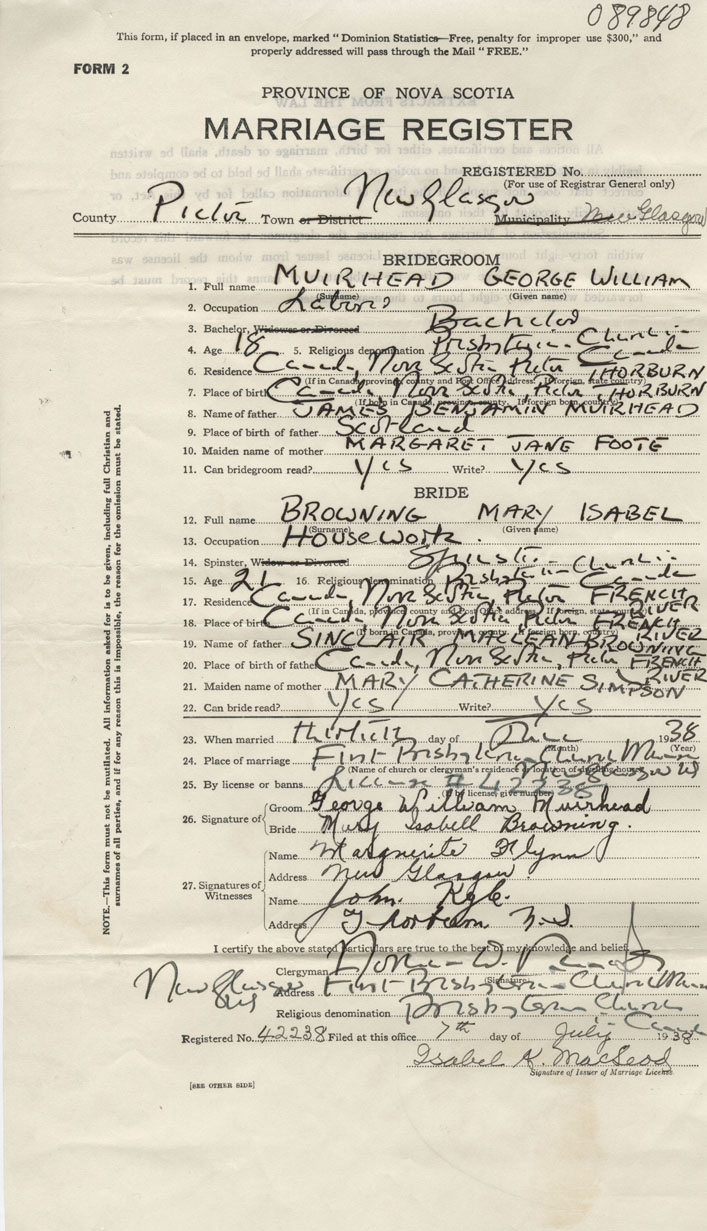 089848
This form, if placed in an envelope, marked "Dominion Statistics—Free, penalty for improper use $300," and
properly addressed will pass through the Mail "FREE."
FORM 2
PROVINCE OF NOVA SCOTIA
MARRIAGE REGISTER
REGISTERED No.
(For use of Registrar General only)
County Pictou Town or District New Glasgow Municipality New Glasgow
BRIDEGROOM
1. Full name MUIRHEAD GEORGE WILLIAM
(Surname) (Given name)
2. Occupation Labor
3. Bachelor, Widower or Divorced Bachelor
4. Age 18 5. Religious denomination Presbyterian Church in Canada
6. Residence Canada, Nova Scotia, Pictou THORBURN
(If in Canada, province, county and Post Office address. If foreign, state country)
7. Place of birth Canada, Nova Scotia, Pictou THORBURN
(If born in Canada, province, county. If foreign born, country)
8. Name of father JAMES BENJAMIN MUIRHEAD
9. Place of birth of father Scotland
10. Maiden name of mother MARGARET JANE FOOTE
11. Can bridegroom read? Yes Write? Yes
BRIDE
12. Full name BROWNING MARY ISABEL
(Surname) (Given name)
13. Occupation Housework.
14. Spinster, Widow or Divorced Spinster
15. Age 21 16. Religious denomination Presbyterian Church in Canada
17. Residence Canada, Nova Scotia, Pictou FRENCH RIVER
(If in Canada, province, county and Post Office address. If foreign, state country)
18. Place of birth Canada, Nova Scotia, Pictou FRENCH RIVER
(If born in Canada, province, county. If foreign born, country)
19. Name of father SINCLAIR MACLEAN BROWNING
20. Place of birth of father Canada, Nova Scotia, Pictou FRENCH RIVER
21. Maiden name of mother MARY CATHERINE SIMPSON
22. Can bride read? Yes Write? Yes
23. When married thirtieth day of June 1938
(Month) (Year)
24. Place of marriage First Presbyterian Church Manse New Glasgow NS
(Name of church or clergyman's residence or location of dwelling house)
25. By license or banns License # 42238
(If by license, give number)
26. Signature of Groom George William Muirhead
Bride Mary Isabell Browning.
27. Signatures of Witnesses
Name Marguerite Flynn
Address New Glasgow.
Name John Kyle.
Address Thorburn N.S.
I certify the above stated particulars are true to the best of my knowledge and belief.
Clergyman W.
(Signature)
Address First Presbyterian Church Manse
New Glasgow NS
Religious denomination Presbyterian Church Canada
Registered No. 42238 Filed at this office 7th day of July 1938
Isabel K. MacLeod
Signature of Issuer of Marriage License
[SEE OTHER SIDE]
NOTE.—This form must not be mutilated. All information asked for is to be given, including full Christian and
surnames of all parties, and if for any reason this is impossible, the reason for the omission must be stated.